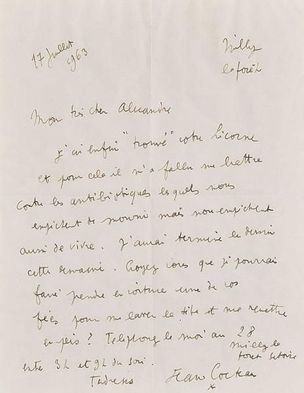 17 Juillet
1963
Milly
la forêt
Mon très cher Alexandre
J'ai enfin "trouvé" votre Licorne
et pour cela il m'a fallu me battre
contre les antibiotiques lesquels nous
empêchent de mourir mais nous empêchent
aussi de vivre. J'aurai terminé le dessin
cette semaine. Croyez vous que je pourrais
faire prendre en voiture une de vos
fées pour me laver la tête et me remettre
en plis? Téléphonez le moi au 28
Milly la
forêt
entre 3h et 9h du soir.
Tendresses
Jean Cocteau
*